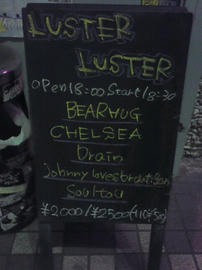 LUSTER
LUSTER
OPen18:00Start/8:30
BEARHUG
CHELSEA
Drain
Johnny loves
Soultou
¥2000/¥2500